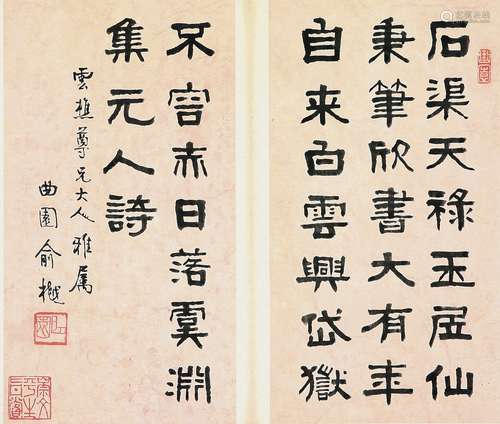 石渠天祿玉居仙
秉筆欣書大有年
自来白雲興岱嶽
不容赤日落虞淵
集元人詩
雲樵尊兄大人雅属
曲園俞樾